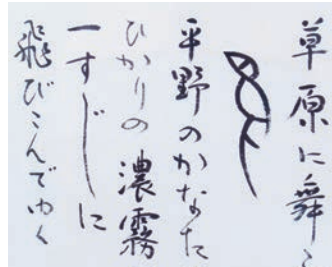 草原に舞
平野のかなた
ひかりの濃霧
一すじに
飛びこんでゆく